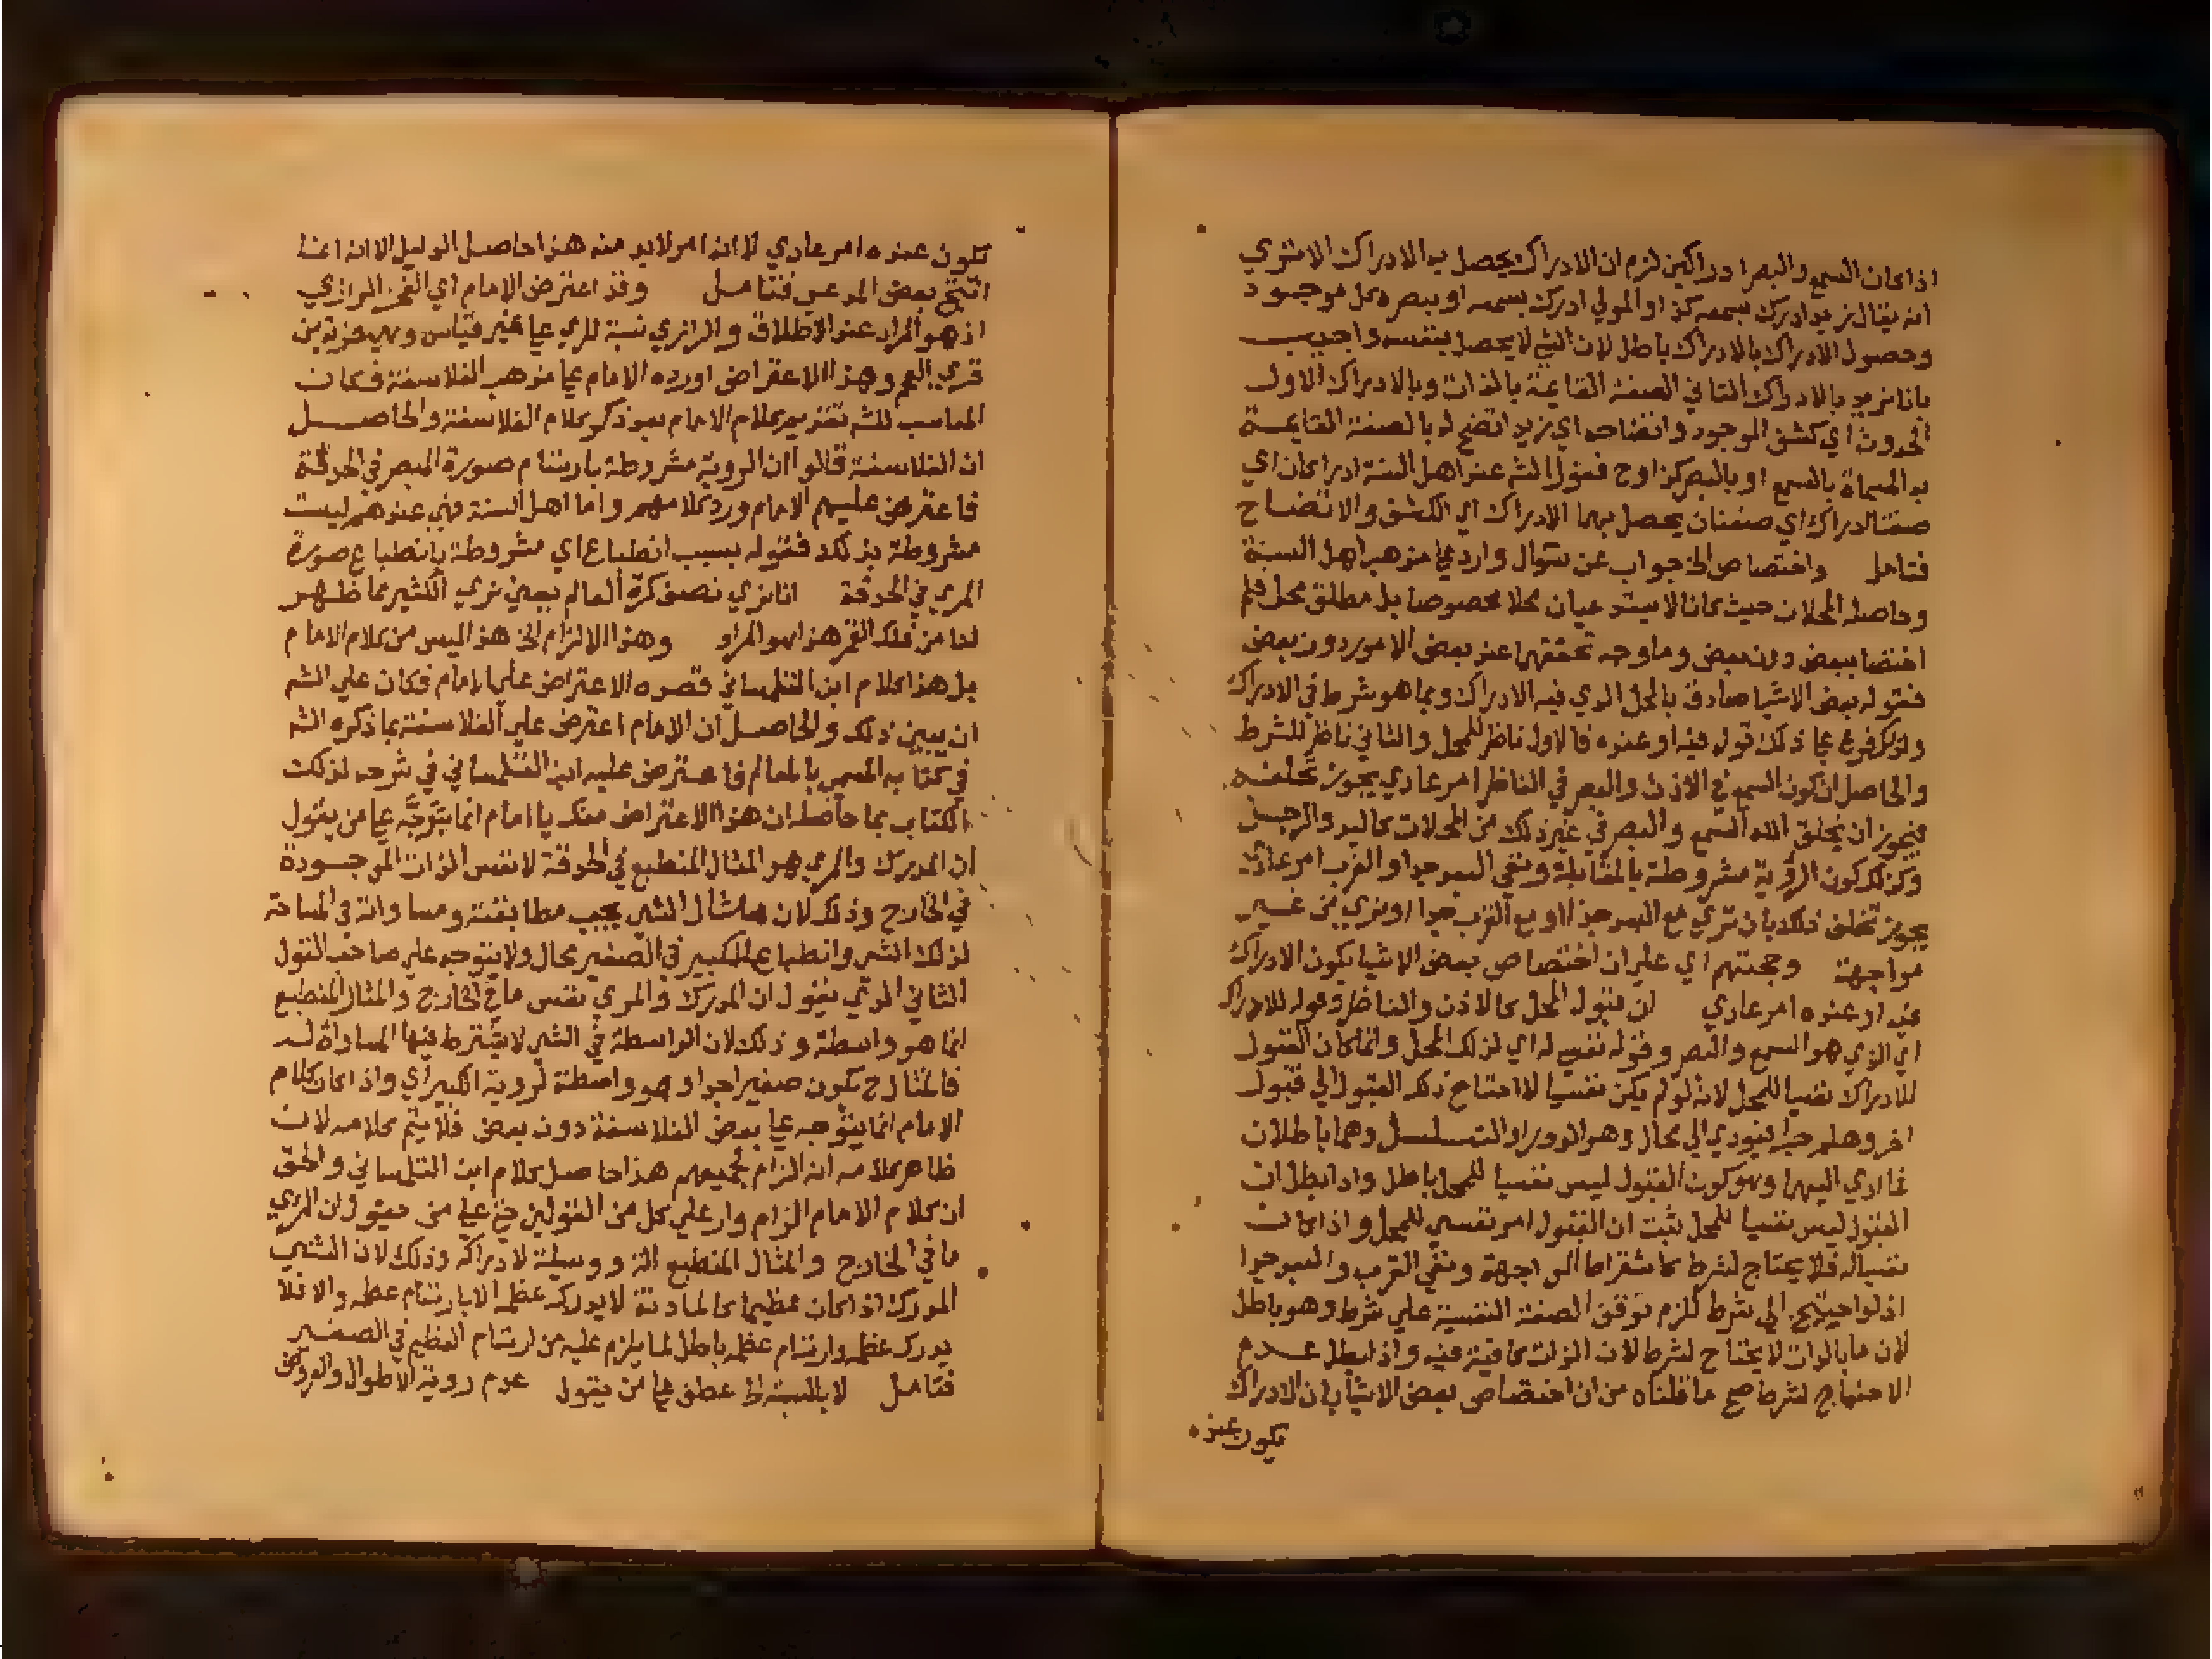 اذا كان السمع والبصر ادراكين لزم ان الادراك يحصل به الادراك الا ترى
انه يقال زيد ادرك بسمعه كذا والمولي ادرك بسمعه او ببصره كل موجود
وحصول الادراك بالادراك باطل لان الشي لا يحصل بنفسه واجيب
بانا نريد بالادراك الثاني الصفة القائمة بالذات وبالادراك الاول
الحدوث اي كشف الموجود واتضاحه اي زيد اتضح له بالصفة القايمة
به المسماة بالسمع او بالبصر كذا وح فقول الشه عند اهل السنة ادراكان اي
صفتا ادراك اي صفتان يحصل بهما الادراك اي الكشف والاتضاح
فتامل واختصاص الخ جواب عن سوال وارد علي مذهب اهل السنة
وحاصله المحلان حيث كانا لا يستدعيان محلا مخصوصا بل مطلق محل فلم
اختصا ببعض دون بعض وما وجه تحققهما عند بعض الامور دون بعض
فقوله ببعض الاشيا صادق بالمحل الذي فيه الادراك وبما هو شرط في الادراك
ولذا فرع علي ذلك قوله فيه او عنده فالاول ناظر للمحل والثاني ناظر للشرط
والحاصل ان كون السمع في الاذن والبصر في الناظر امر عادي يجوز تخلفه
فيجوز ان يخلق الله السمع والبصر في غير ذلك من المحلات كاليد والرجل
وكذلك كون الرؤية مشروطة بالمقابلة ونفي البعد جدا والقرب امر عادي
يجوز تخلف ذلك بان نري مع البعد جدا او مع القرب جدا او نري من غير
مواجهة وحجتهم اي علي ان اختصاص بعض الاشيا بكون الادراك
فيه او عنده امر عادي ان قبول المحل كالاذن والناظر وقوله للادراك
اي الذي هو السمع والبصر وقوله نفسي له اي لذلك المحل وانما كان القبول
للادراك نفسيا للمحل لانه لو لم يكن نفسيا لاحتاج ذلك القبول الي قبول
اخر وهلم جرا فيودي الي محال وهو الدور او التسلسل وهما باطلان
فما ادي اليهما وهو كون القبول ليس نفسيا للمحل باطل واذا بطل ان
القبول ليس نفسيا للمحل ثبت ان القبول امر نفسي للمحل واذا كان
نفسيا له فلا يحتاج لشرط كاشتراط المواجهة ونفي القرب والبعد جدا
اذ لو احتيج الي شرط للزم توقف الصفة النفسية علي شرط وهو باطل
لان ما بالذات لا يحتاج لشرط لان الذات كافية فيه واذا بطل عدم
الاحتياج لشرط صح ما قلناه من ان اختصاص بعض الاشيا بان الادراك
يكون عند
يكون عنده امر عادي لا انه امر لا بد منه هذا حاصل الدليل الا انه انما
انتج بعض المدعي فتامل وقد اعترض الامام اي الفخر الرازي
اذ هو المراد عند الاطلاق والرازي نسبة للري علي غير قياس وهي قرية من
قري العجم وهذا الاعتراض اورده الامام علي مذهب الفلاسفة فكان
المناسب للشه تقديم كلام الامام بعد ذكر كلام الفلاسفة والحاصل
ان الفلاسفة قالوا ان الروية مشروطة بارتسام صورة المبصر في الحدقة
فاعترض عليهم الامام ورد كلامهم واما اهل السنة فهي عندهم ليست
مشروطة بذلك فقوله بسبب انطباع اي مشروطة بانطباع صورة
المري في الحدقة انا نري نصف كرة العالم يعني نري الكثير مما ظهر
لنا من فلك القمر هذا هو المراد وهذا الالزام الخ هذا ليس من كلام الامام
بل هذا كلام ابن التلمساني قصده الاعتراض علي الامام فكان علي الشه
ان يبين ذلك والحاصل ان الامام اعترض علي الفلاسفة بما ذكره الشه
في كتابه المسمي بالمعالم فاعترض عليه ابن التلمساني في شرحه لذلك
الكتاب بما حاصله ان هذا الاعتراض منك يا امام انما يتوجه علي من يقول
ان المدرك والمري هو المثال المنطبع في الحدقة لا نفس الذات الموجودة
في الخارج وذلك لان مثال الشي يجب مطابقته ومساواته في المساحة
لذلك الشي وانطباع الكبير في الصغير محال ولا يتوجه علي صاحب القول
الثاني الذي يقول ان المدرك والمري نفس ما في الخارج والمثال المنطبع
انما هو واسطة وذلك لان الواسطة في الشي لا يشترط فيها المساواة له
فالمثال ح يكون صغيرا جدا وهو واسطة لروية الكبير اي واذا كان كلام
الامام انما يتوجه علي بعض الفلاسفة دون بعض فلا يتم كلامه لان
ظاهر كلامه انه الزام لجميعهم هذا حاصل كلام ابن التلمساني والحق
ان كلام الامام الزام وارد علي كل من القولين حتي علي من يقول ان المري
ما في الخارج والمثال المنطبع الة ووسيلة لادراكه وذلك لان الشي
المدرك اذا كان عظيما كالمادنة لا يدرك عظمه الا بارتسام عظمه والا فلا
يدرك عظمه وارتسام عظمه باطل لما يلزم عليه من ارتسام العظيم في الصغير
فتامل لا بالنسبة الخ عطف علي من يقول عدم روية الاطوال والعروض